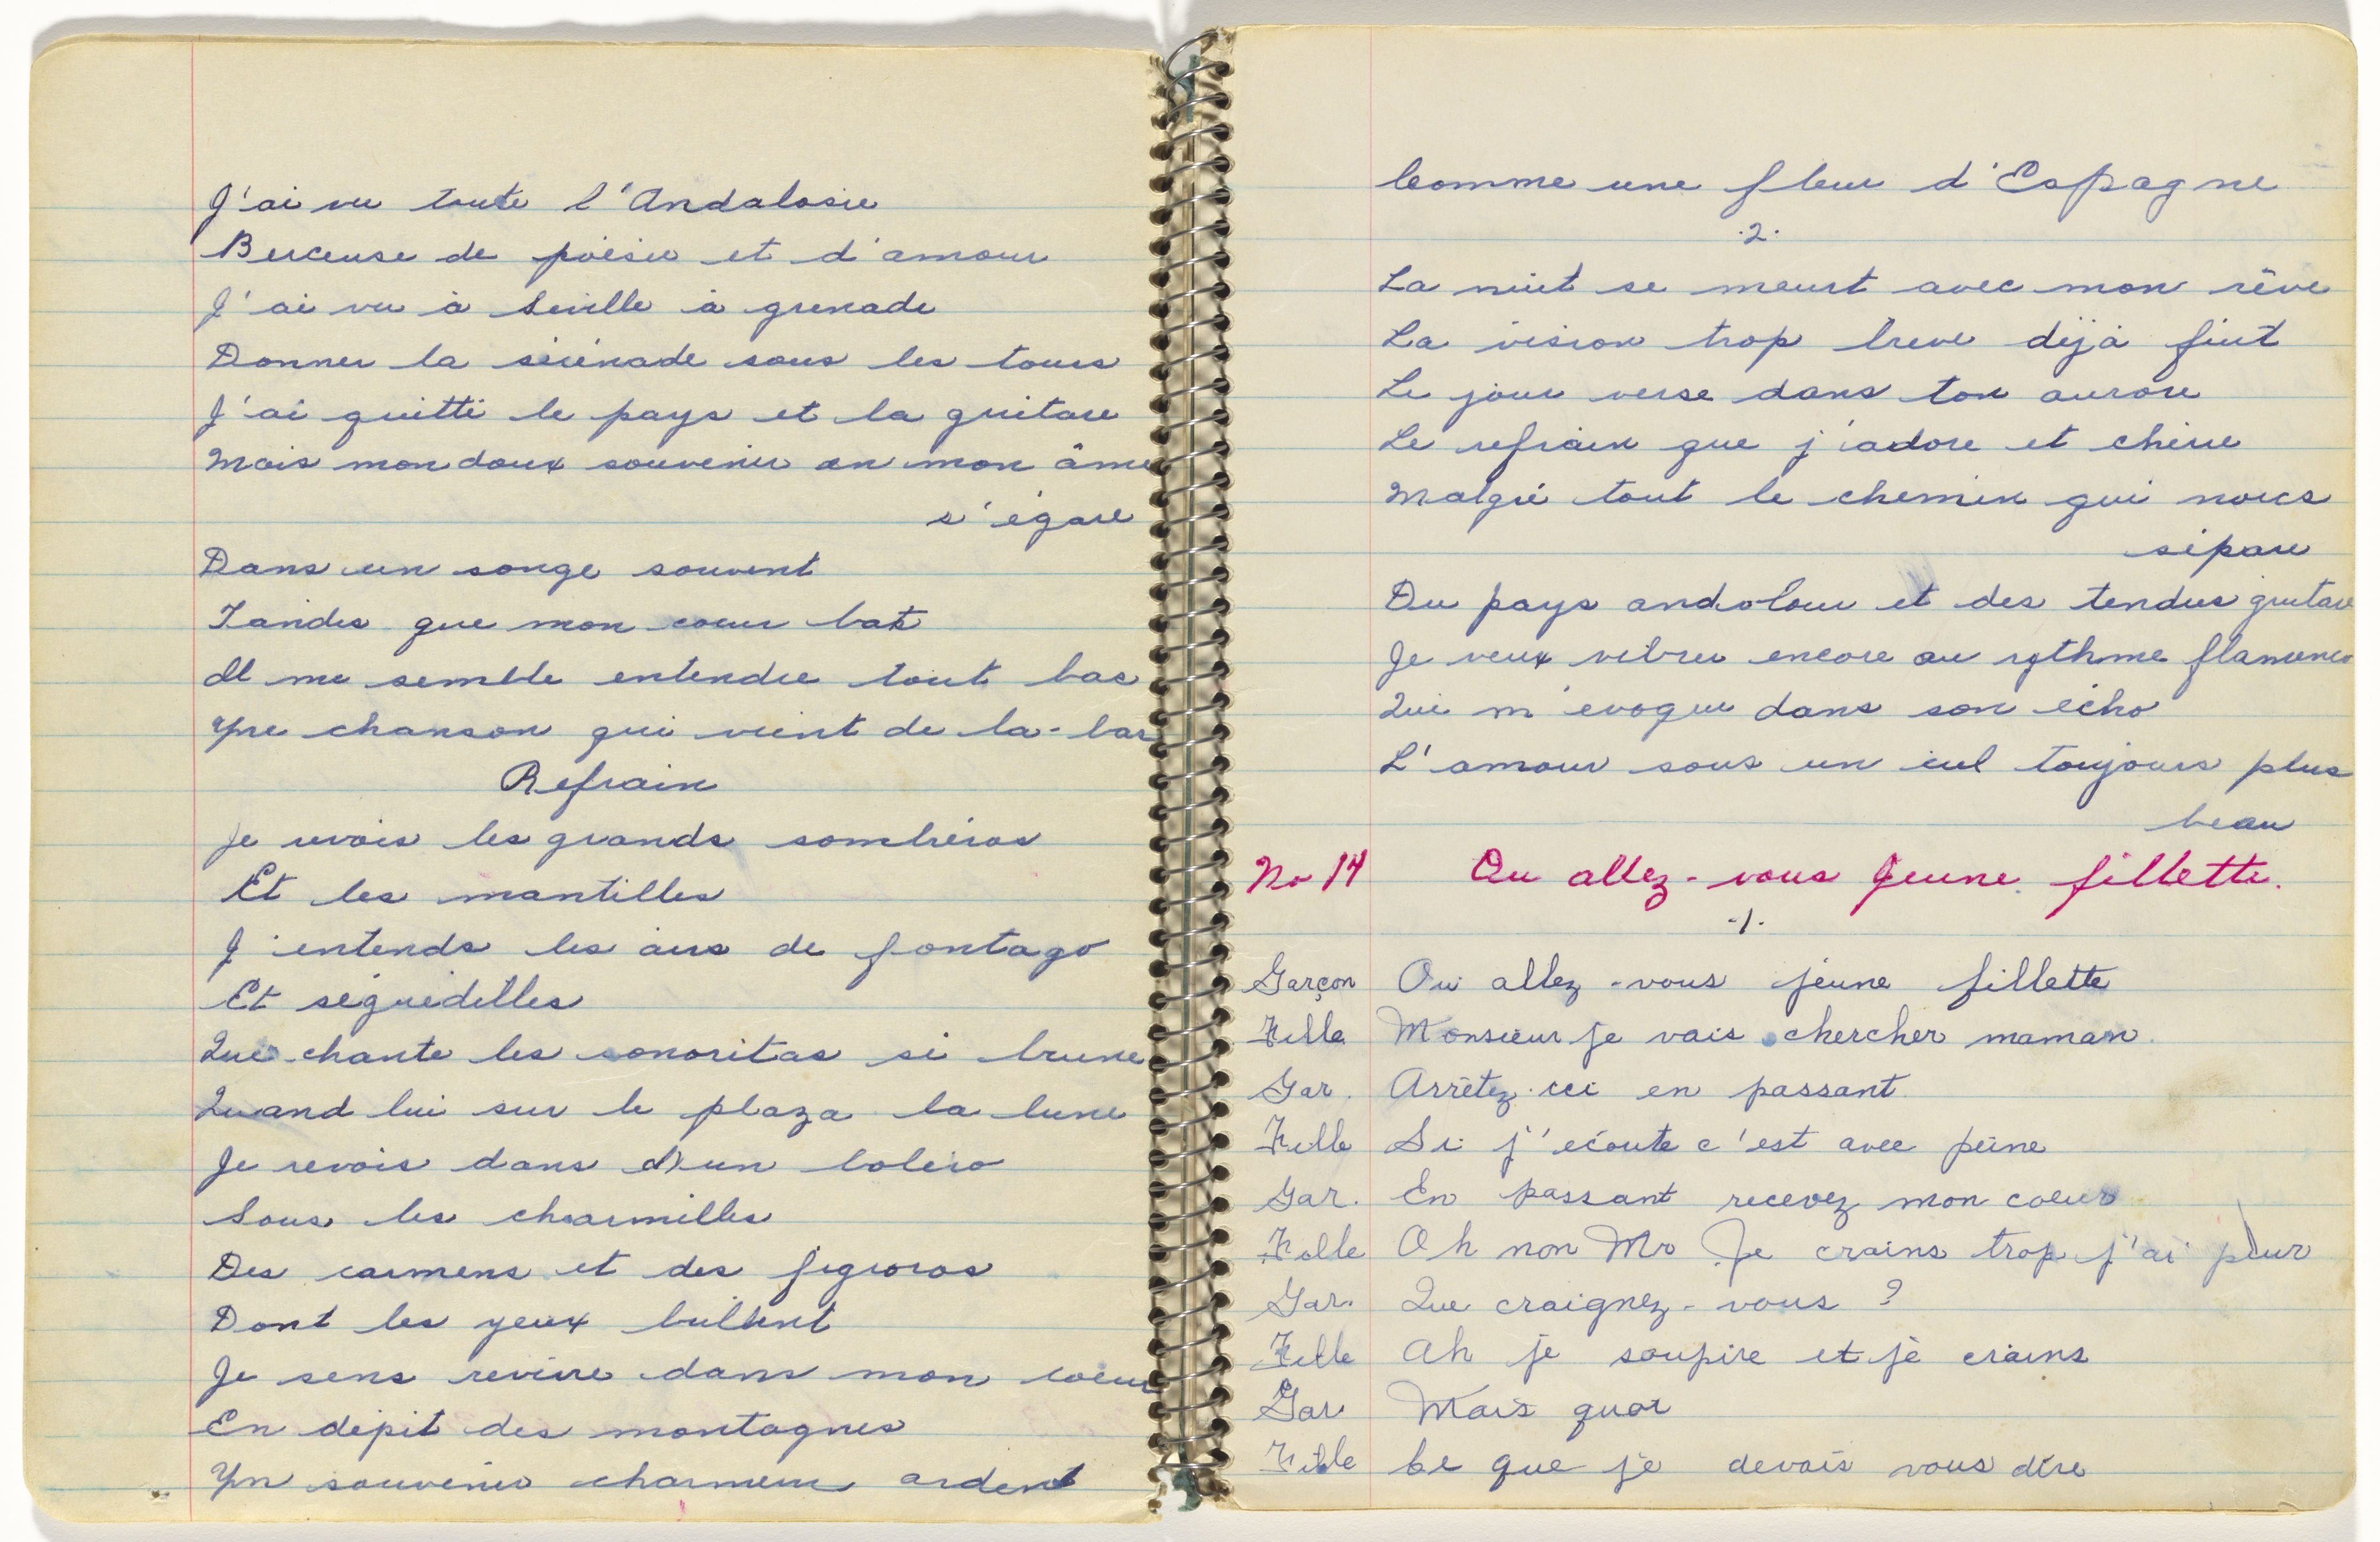 J'ai vu toute l'Andalosie
Berceuse de poésie et d'amour
J'ai vu à Séville à grenade
Donner la sérénade sous les tours
J'ai quitté le pays et la guitare
Mais mon doux souvenir en mon âme
s'égare
Dans un songe souvent
Tandis que mon coeur bat
Il me semble entendre tout bas
Une chanson qui vient de la-bas
Refrain
Je revois les grands sombréros
Et les mantilles
J'entends les airs de fontago
Et séguédilles
Que chante les sonoritas si brune
Quand lui sur le plaza la lune
Je revois dans d'un boléro
Sous les charmilles
Des carmens et des figoros
Dont les yeux brillent
Je sens revivre dans mon coeur
En dépit des montagnes
Un souvenir charmeur ardent
Comme une fleur d'Espagne
.2.
La nuit se meurt avec mon rêve
La vision trop breve déjà finit
Le jour verse dans ton aurore
Le refrain que j'adore et chérie
Malgré tout le chemin qui nous
sépare
Du pays andalou et des tendres guitare
Je veux vibrer encore au rythme flamenco
Qui m'évoque dans son écho
L'amour sous un ciel toujours plus
beau
No 14 Ou allez-vous Jeune fillette.
-1.
Garçon Ou allez-vous jeune fillette
Fille Monsieur je vais chercher maman.
Gar. Arrêtez ici en passant
Fille Si j'écoute c'est avec peine
Gar. En passant recevez mon coeur
Fille Oh non Mr Je crains trop j'ai peur
Gar. Que craignez-vous ?
Fille Ah je soupire et je crains
Gar Mais quoi
Fille Ce que je devais vous dire